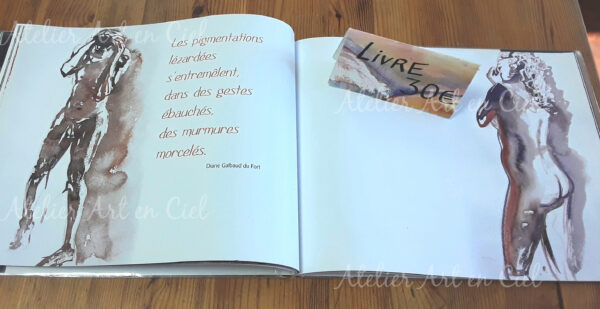 Les pigmentations
lézardées
s'entremêlent,
dans des gestes
ébauchés,
des murmures
morcelés.
Diane Galbaud du Fort
LIVRE
30€
Atelier Art en Ciel
Atelier Art en Ciel
Atelier Art en Ciel
Atelier Art en Ciel